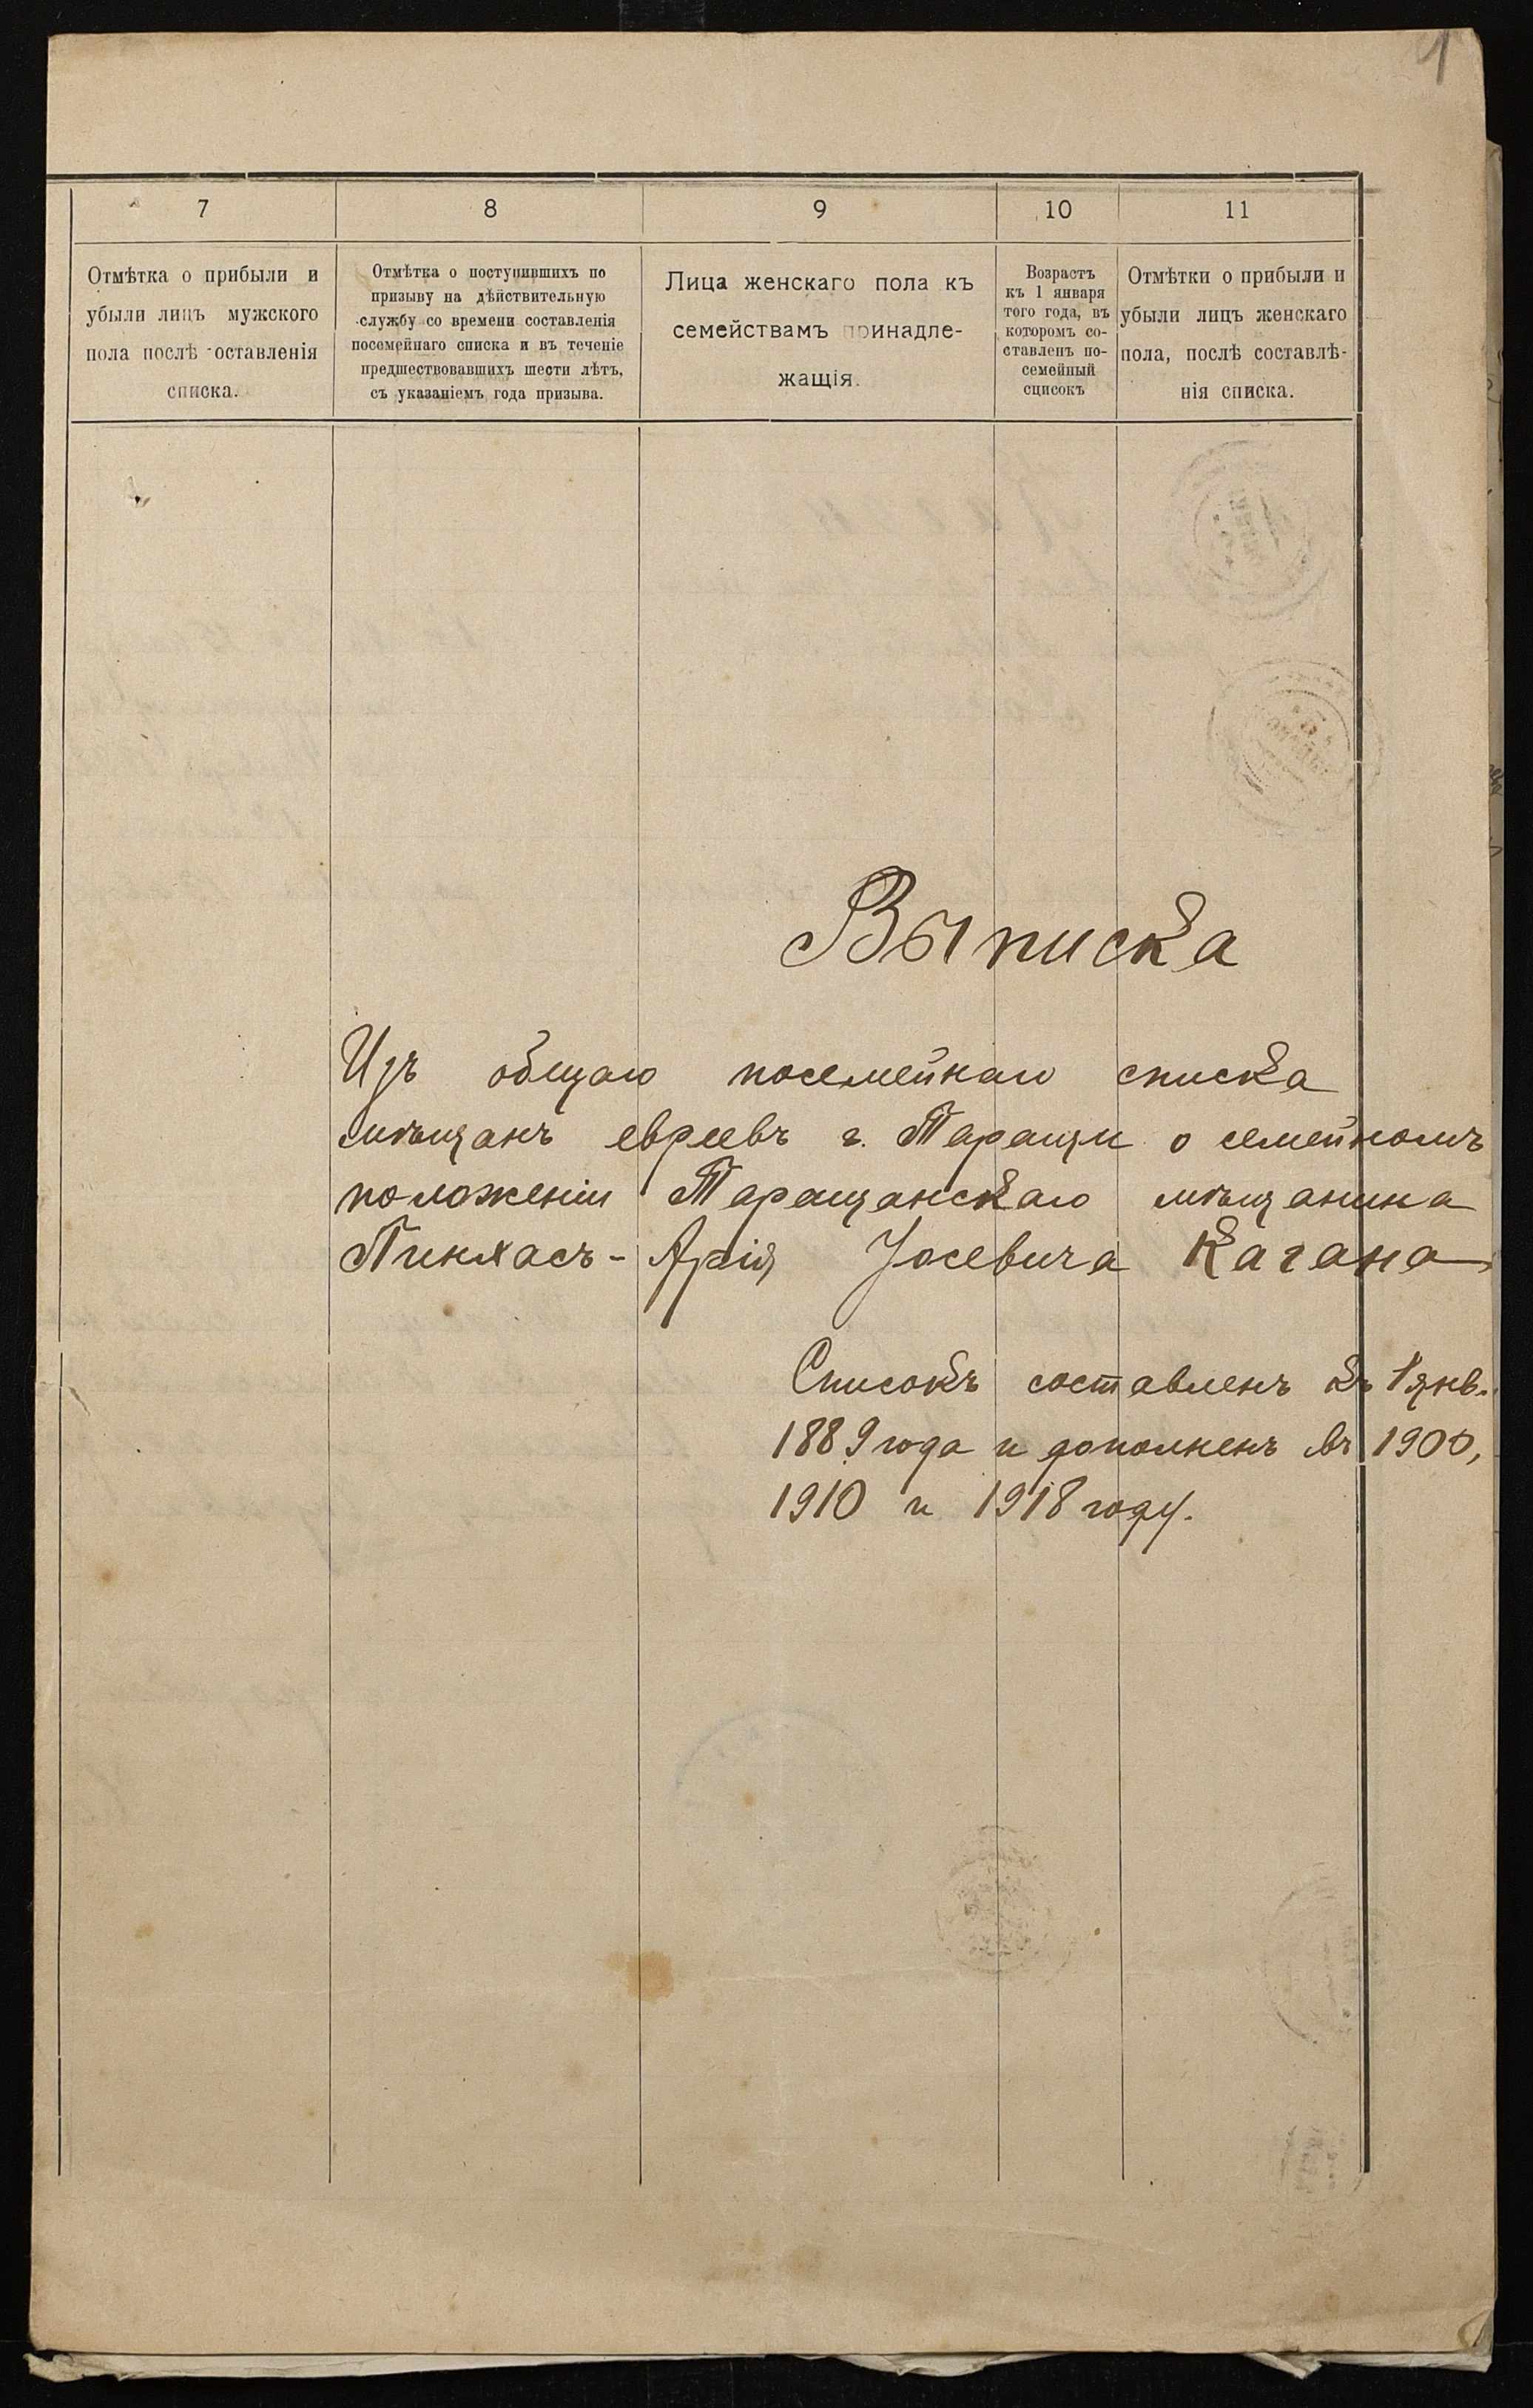 1
7
8
9
10
11
Отмѣтка о прибыли и
убыли лицъ мужского
пола послѣ составленія
списка.
Отмѣтка о поступившихъ по
призыву на дѣйствительную
службу со времени составленія
посемейнаго списка и въ теченіе
предшествовавшихъ шести лѣтъ,
съ указаніемъ года призыва.
Лица женскаго пола къ
семействамъ принадле-
жащія.
Возрастъ
къ 1 января
того года, въ
которомъ со-
ставленъ по-
семейный
списокъ
Отмѣтки о прибыли и
убыли лицъ женскаго
пола, послѣ составлѣ-
нія списка.
Выписка
Изъ общаго посемейнаго списка
мѣщанъ евреевъ г. Таращи о семейномъ
положеніи Таращанскаго мѣщанина
Пинхасъ-Арія Іосевича Кагана
Списокъ составленъ къ 1 янв.
1889 года и дополненъ въ 1900,
1910 и 1918 году.